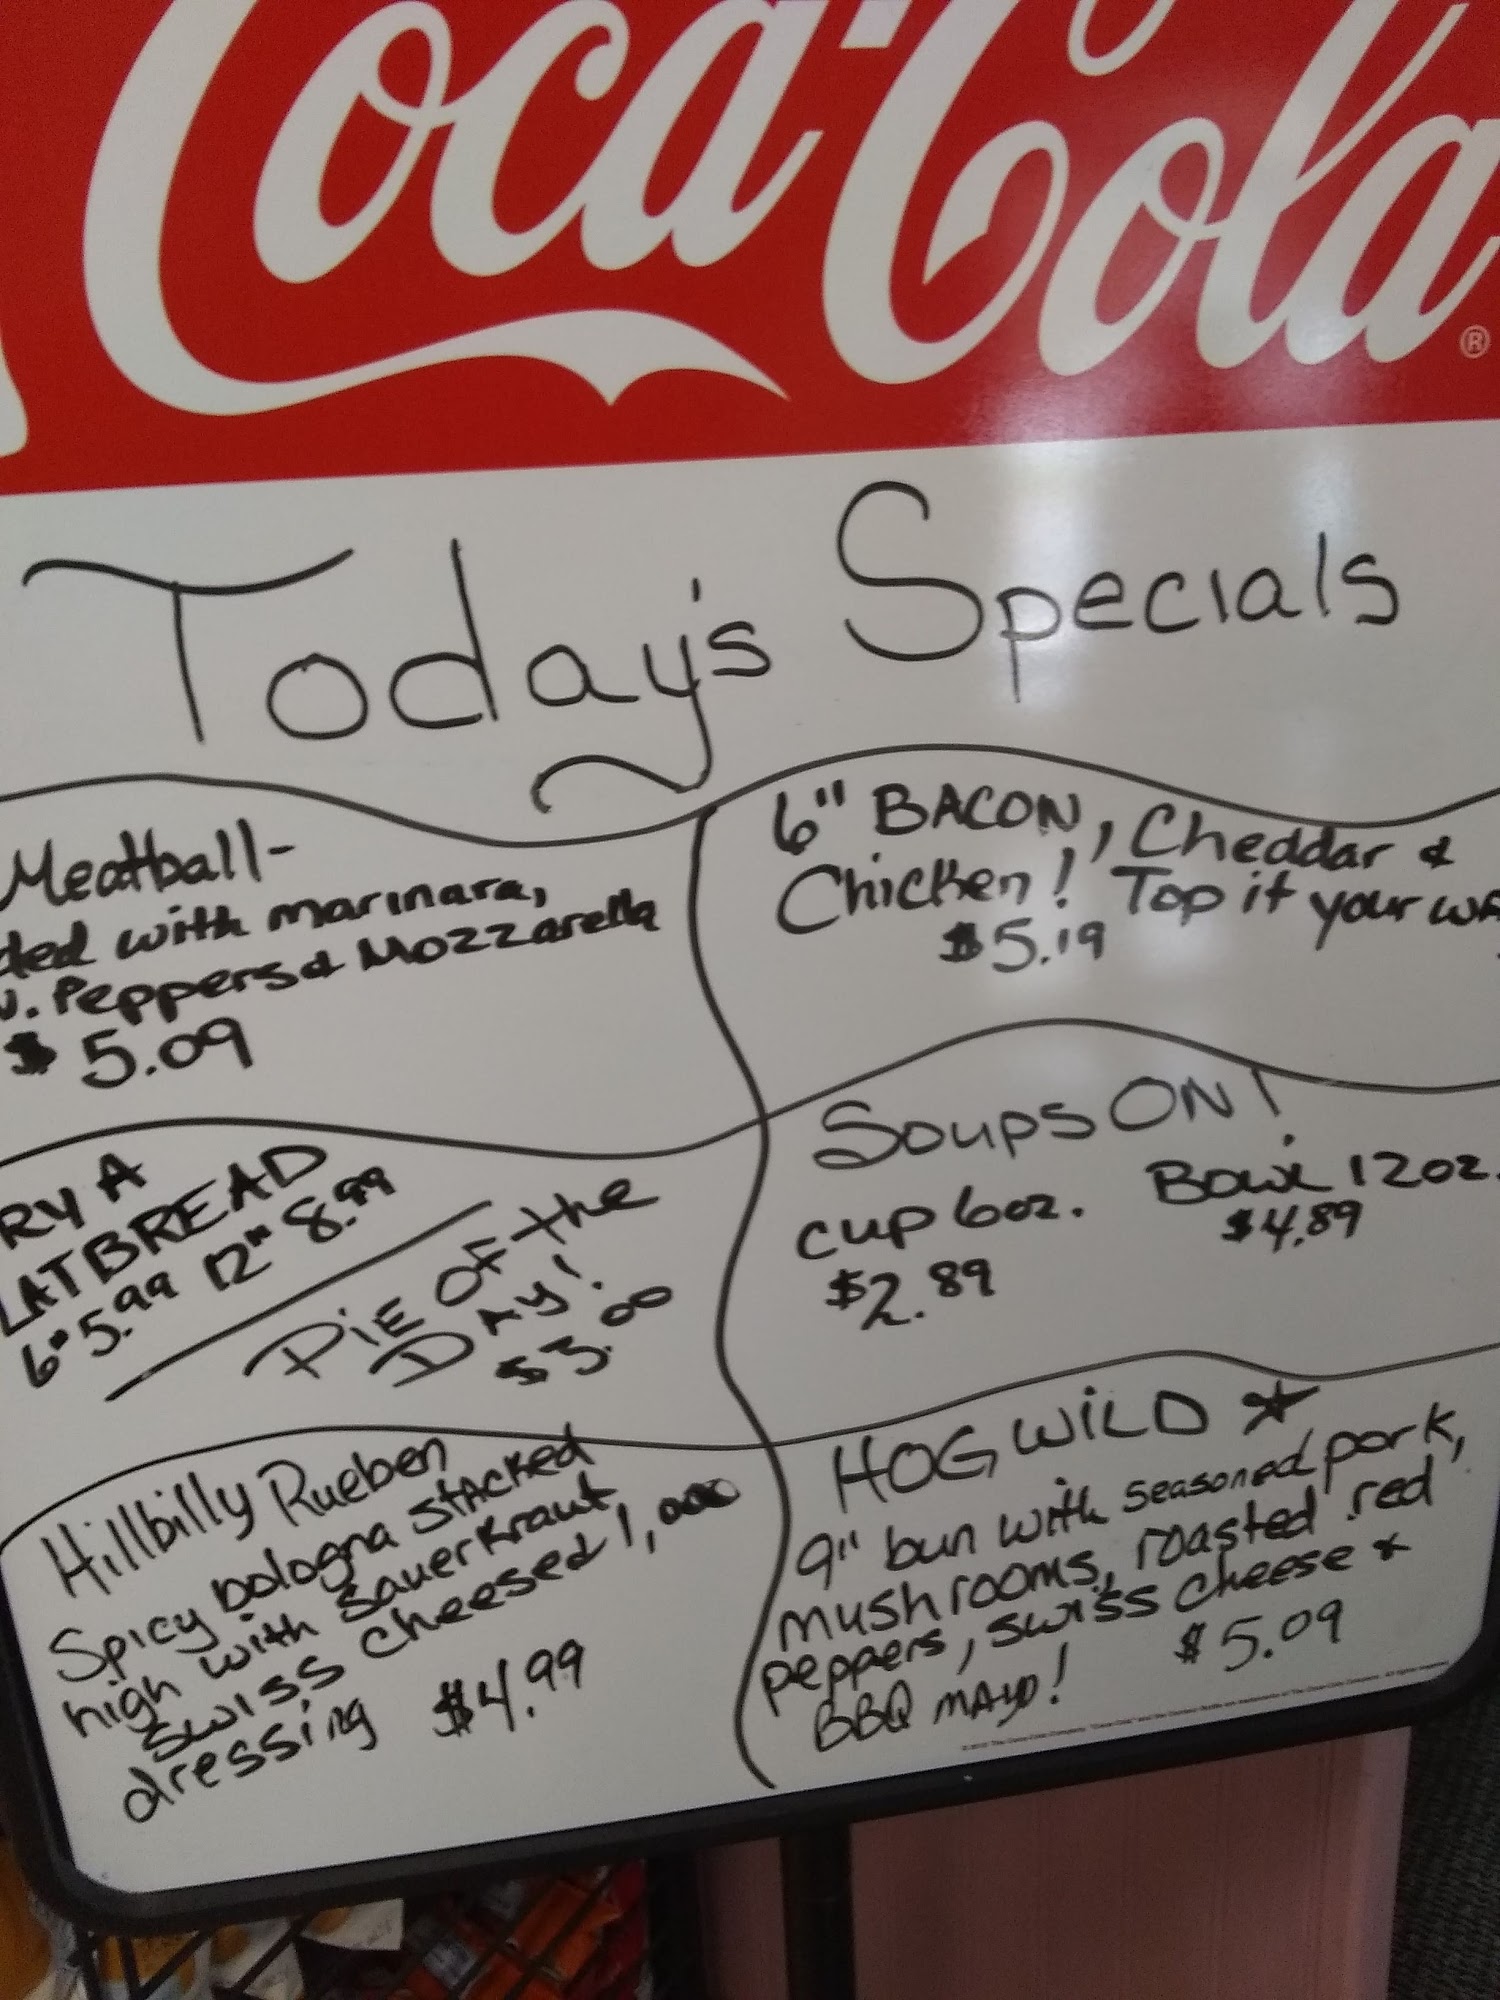 Coca-Cola
®
Today's Specials
Meatball-
ded with marinara,
. Peppers & Mozzarella
$5.09
6" BACON, Cheddar &
Chicken! Top it your wa
$5.19
RY A
LATBREAD
6" 5.99 12" 8.99
PiE OF the
DAy!
$3.00
Soups ON!
cup 6oz. Bowl 12oz.
$2.89 $4.89
Hillbilly Rueben
Spicy bologna stacked
high with Sauerkraut,
swiss cheese & 1,000
dressing $4.99
HOG WiLD
9" bun with seasoned pork,
mushrooms, roasted red
peppers, swiss cheese &
BBQ MAYO! $5.09